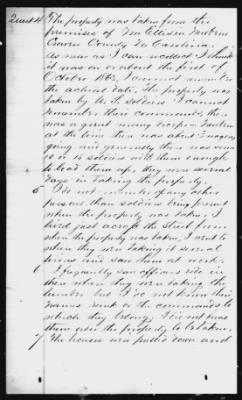 Quest 4 The property was taken from the
premises of Wm Ellison Newbern
Craven County No Carolina.
As near as I can recollect I think
it was on or about the first of
October 1863, I cannot remember
the actual date. The property was
taken by U.S. Soldiers I cannot
remember their commands, there
was a good many troops in Newbern
at the time there was about 3 wagons
going and generally there was some
10 or 15 soldiers with them enough
to load them up, they were several
days in taking the property.
5 I do not of any other
persons than soldiers being present
when the property was taken, I
lived just across the street from
when the property was taken, I went to
when they were taking it several
times and saw them at work.
6 I frequently saw officers ride in
there when they were taking the
lumber but I do not know their
names rank or the commands to
which they belong, I do not
them order the property to be taken.
7 The houses were pulled down and